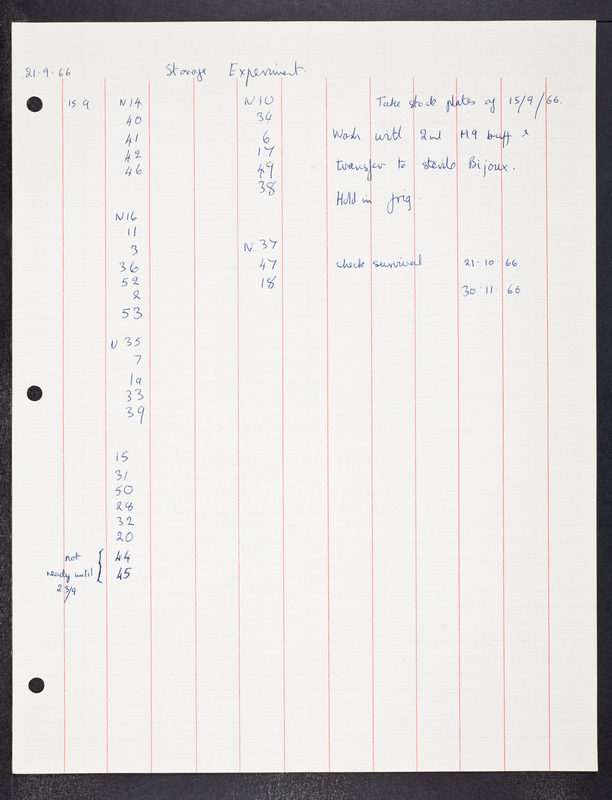 21.9.66 Storage Experiment.
15.9 N14
40
41
42
46
N16
11
3
36
52
2
53
N 35
7
1a
33
39
15
31
50
28
32
20
not { 44
ready until 45
23/9
N10
34
6
17
49
38
N 37
47
18
Take stock plates of 15/9/66.
Wash with 2ml M9 buff &
transfer to sterile Bijoux.
Hold in frig.
check survival 21.10.66
30.11.66